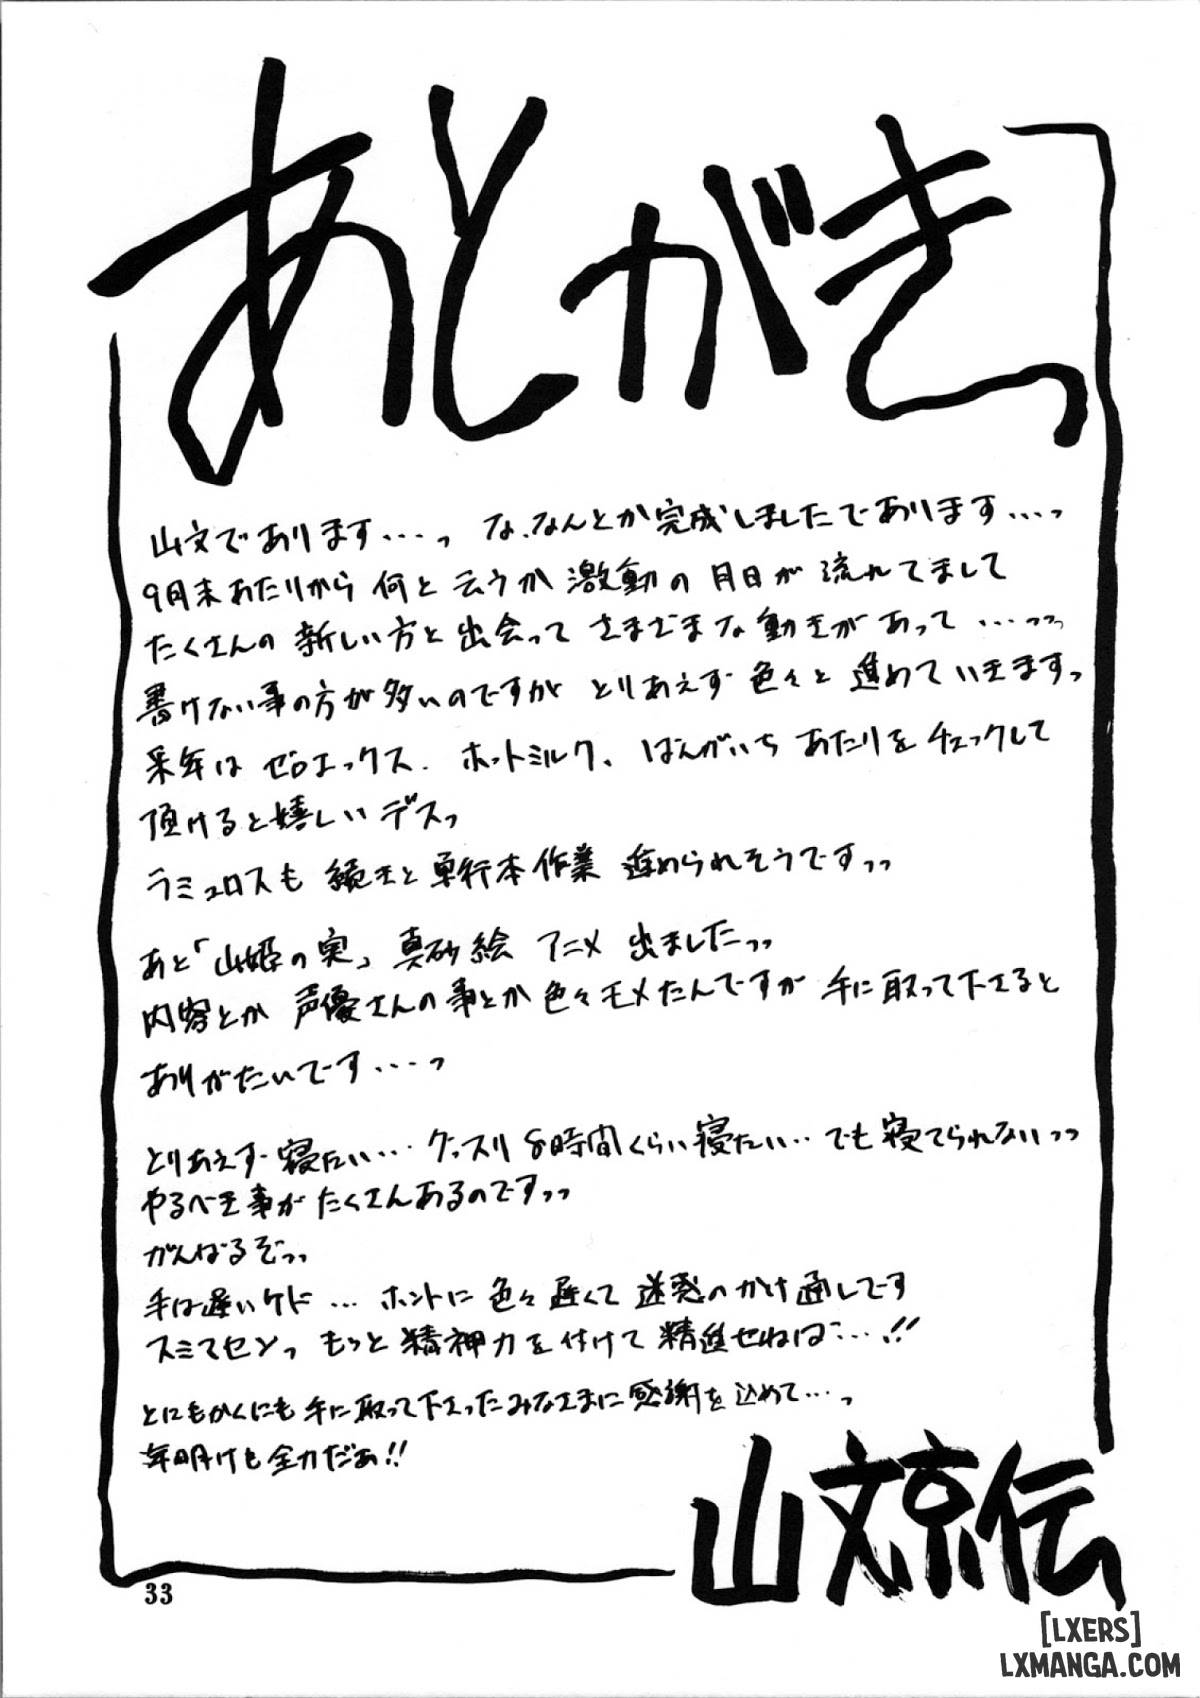 あとがき
山文であります…っ な、なんとか完成しましたであります…っ
9月末あたりから何と云うか激動の月日が流れてまして
たくさんの新しい方と出会ってさまざまな動きがあって…っっ
書けない事の方が多いのですがとりあえず色々と進めていきますっ
来年はゼロエックス、ホットミルク、ばんがいちあたりをチェックして
頂けると嬉しいデスっ
ラミュロスも続きと単行本作業進められそうですっっ
あと「山姫の実」真砂絵アニメ出ましたっっ
内容とか声優さんの事とか色々モメたんですが手に取って下さると
ありがたいです…っ
とりあえず寝たい…グッスリ8時間くらい寝たい…でも寝てられないっっ
やるべき事がたくさんあるのですっっ
がんばるぞっっ
手は遅いケド…ホントに色々遅くて迷惑のかけ通しです
スミマセンっ もっと精神力を付けて精進せねば…!!
とにもかくにも手に取って下さったみなさまに感謝を込めて…っ
年明けも全力だぁ!!
山文京伝
33
[LXERS]
LXMANGA.COM